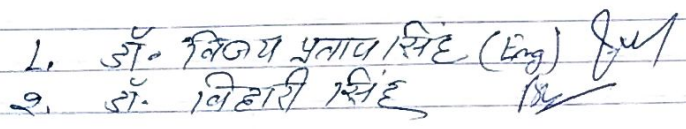 1. डॉ. विजय प्रताप सिंह (Eng)
2. डॉ. विहारी सिंह